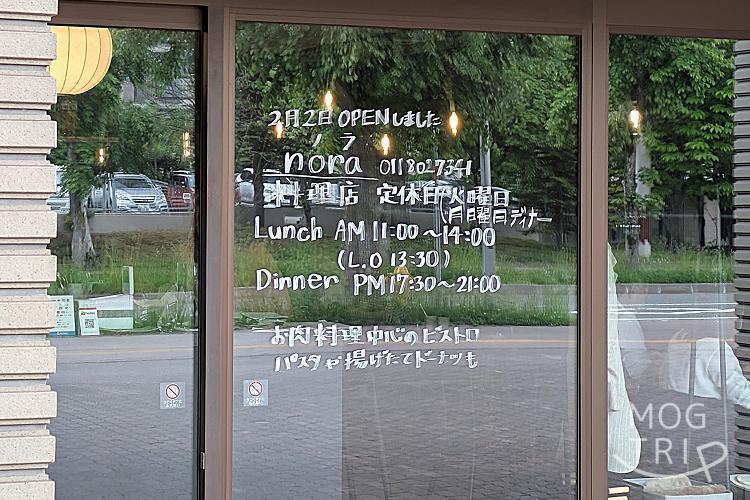 2月2日 OPENしました
ノラ
nora 011 802 7341
料理店 定休日 火曜日
月曜日ディナー
Lunch AM 11:00~14:00
(L.O 13:30)
Dinner PM 17:30~21:00
お肉料理中心のビストロ
パスタや揚げたてドーナツも
MOG
TRIP